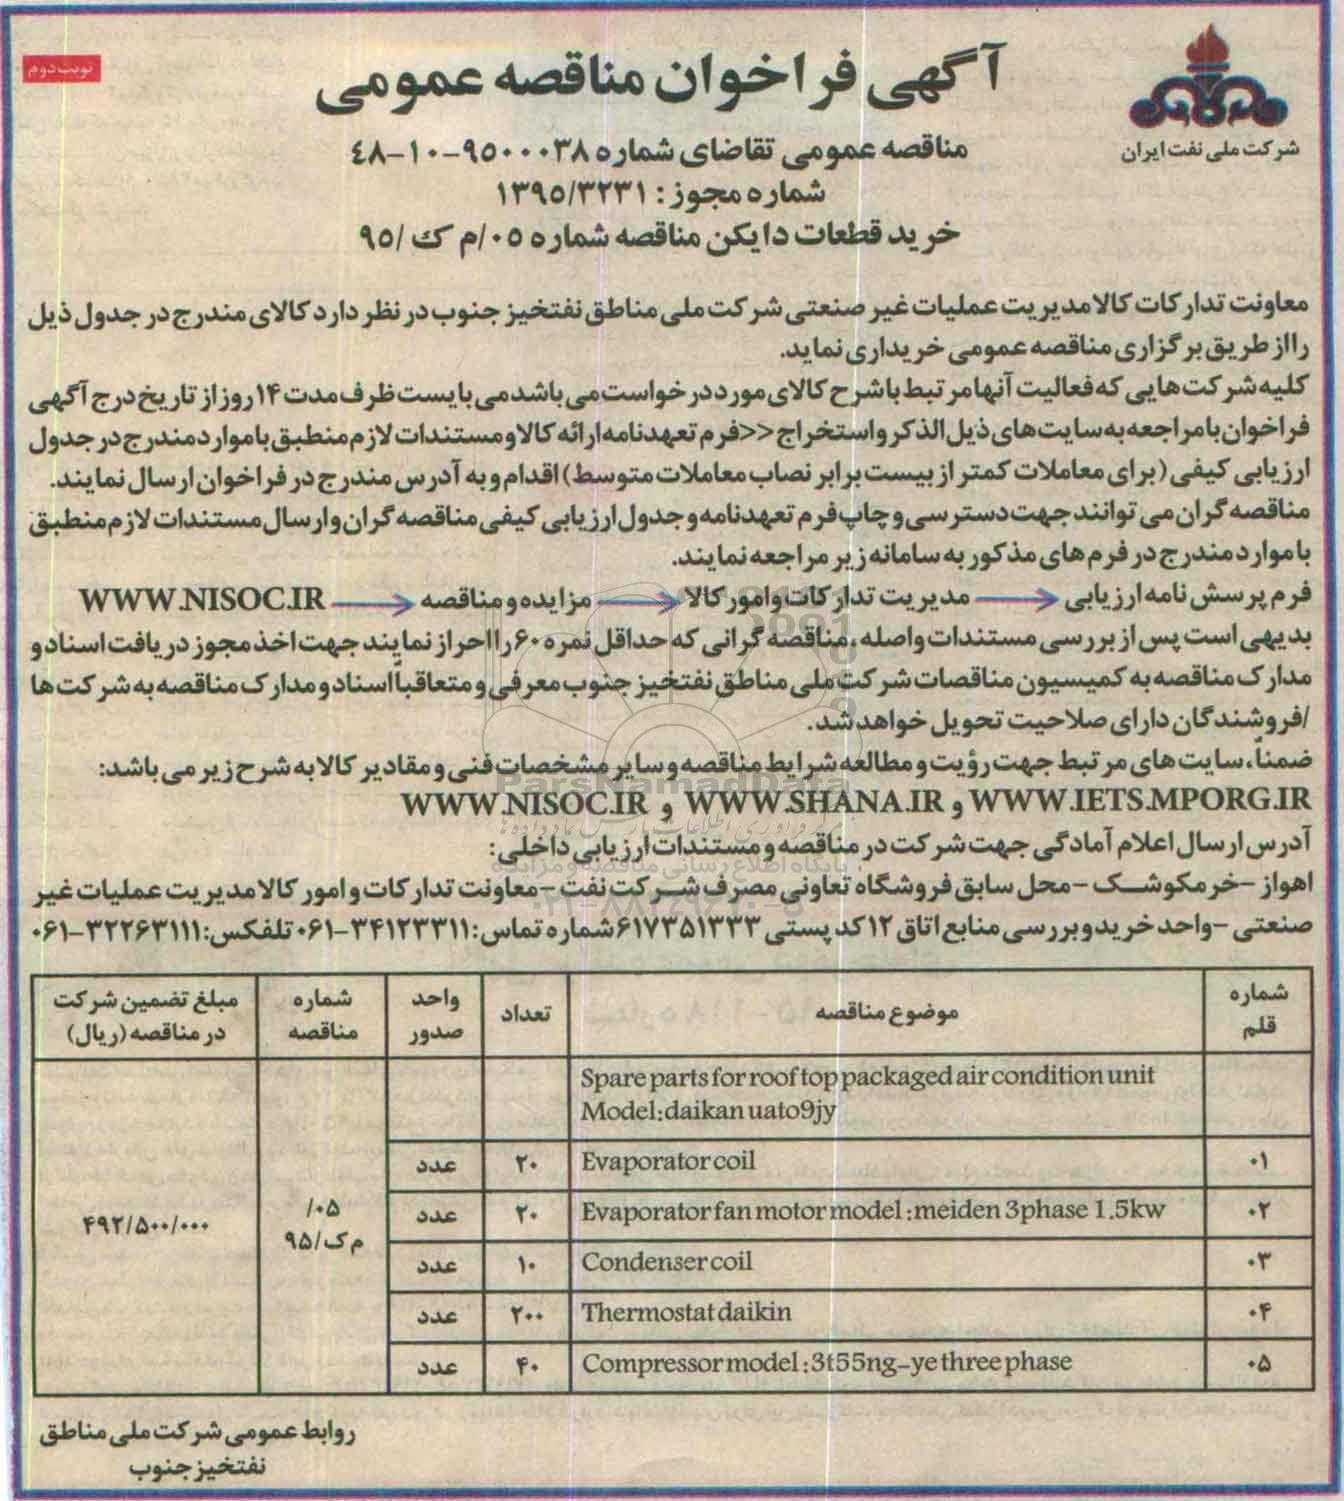 نوبت دوم
شرکت ملی نفت ایران
آگهی فراخوان مناقصه عمومی
مناقصه عمومی تقاضای شماره ۹۵۰۰۰۳۸-۱۰-۴۸
شماره مجوز: ۱۳۹۵/۳۲۳۱
خرید قطعات دایکن مناقصه شماره ۰۵/م ک /۹۵
معاونت تدارکات کالا مدیریت عملیات غیر صنعتی شرکت ملی مناطق نفتخیز جنوب در نظر دارد کالای مندرج در جدول ذیل
را از طریق برگزاری مناقصه عمومی خریداری نماید.
کلیه شرکت هایی که فعالیت آنها مرتبط با شرح کالای مورد درخواست می باشد می بایست ظرف مدت ۱۴ روز از تاریخ درج آگهی
فراخوان با مراجعه به سایت های ذیل الذکر و استخراج <<فرم تعهدنامه ارائه کالا و مستندات لازم منطبق با موارد مندرج در جدول
ارزیابی کیفی (برای معاملات کمتر از بیست برابر نصاب معاملات متوسط) اقدام و به آدرس مندرج در فراخوان ارسال نمایند.
مناقصه گران می توانند جهت دسترسی و چاپ فرم تعهدنامه و جدول ارزیابی کیفی مناقصه گران و ارسال مستندات لازم منطبق
با موارد مندرج در فرم های مذکور به سامانه زیر مراجعه نمایند.
فرم پرسش نامه ارزیابی → مدیریت تدارکات و امور کالا → مزایده و مناقصه → WWW.NISOC.IR
بدیهی است پس از بررسی مستندات واصله، مناقصه گرانی که حداقل نمره ۶۰ را احراز نمایند جهت اخذ مجوز دریافت اسناد و
مدارک مناقصه به کمیسیون مناقصات شرکت ملی مناطق نفتخیز جنوب معرفی و متعاقباً اسناد و مدارک مناقصه به شرکت ها
/فروشندگان دارای صلاحیت تحویل خواهد شد.
ضمناً، سایت های مرتبط جهت رؤیت و مطالعه شرایط مناقصه و سایر مشخصات فنی و مقادیر کالا به شرح زیر می باشد:
WWW.IETS.MPORG.IR و WWW.SHANA.IR و WWW.NISOC.IR
آدرس ارسال اعلام آمادگی جهت شرکت در مناقصه و مستندات ارزیابی داخلی:
اهواز - خرمکوشک - محل سابق فروشگاه تعاونی مصرف شرکت نفت - معاونت تدارکات و امور کالا مدیریت عملیات غیر
صنعتی - واحد خرید و بررسی منابع اتاق ۱۲ کد پستی ۶۱۷۳۵۱۳۳۳ شماره تماس: ۳۴۱۲۳۳۱۱-۰۶۱ تلفکس: ۳۲۲۶۳۱۱۱-۰۶۱
شماره قلم | موضوع مناقصه | تعداد | واحد صدور | شماره مناقصه | مبلغ تضمین شرکت در مناقصه (ریال)
Spare parts for roof top packaged air condition unit
Model:daikan uato9jy
۰۱ | Evaporator coil | ۲۰ | عدد
۰۲ | Evaporator fan motor model :meiden 3phase 1.5kw | ۲۰ | عدد | ۰۵/ م ک/۹۵ | ۴۹۲/۵۰۰/۰۰۰
۰۳ | Condenser coil | ۱۰ | عدد
۰۴ | Thermostat daikin | ۲۰۰ | عدد
۰۵ | Compressor model :3t55ng-ye three phase | ۴۰ | عدد
روابط عمومی شرکت ملی مناطق
نفتخیز جنوب
ParsNamadData
پایگاه اطلاع رسانی مناقصه و مزایده